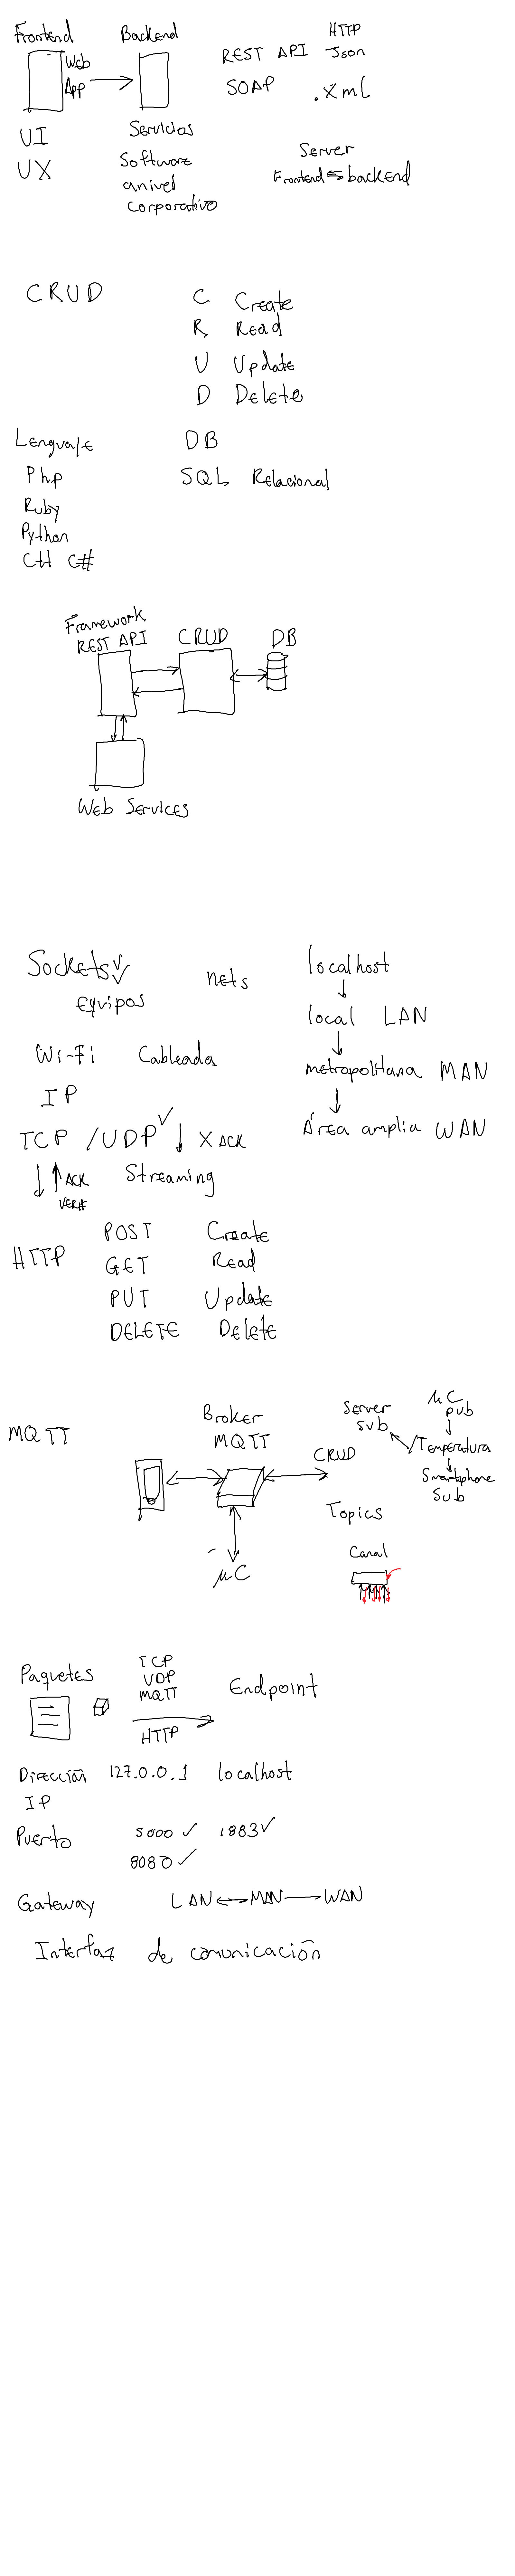 Frontend Backend HTTP
Web App REST API Json
SOAP .xml
UI Servicios
UX Software
a nivel
corporativo
Server
Frontend ⇆ backend
CRUD
C Create
R Read
U Update
D Delete
Lenguaje DB
Php SQL Relacional
Ruby
Python
C++ C#
Framework
REST API CRUD DB
Web Services
Sockets nets localhost
Equipos
local LAN
Wi-Fi Cableada
metropolitana MAN
IP
TCP /UDP ✓ ↓ X ACK
Área amplia WAN
↓↑ ACK Streaming
VERIF
HTTP
POST Create
GET Read
PUT Update
DELETE Delete
MQTT
Broker
MQTT
CRUD
Server
sub
μC
pub
Temperatura
Smartphone
Sub
Topics
μC
Canal
Paquetes
TCP
UDP
MQTT
HTTP
Endpoint
Dirección 127.0.0.1 localhost
IP
Puerto 5000 ✓ 1883 ✓
8080 ✓
Gateway LAN ↔ MAN — WAN
Interfaz de comunicación